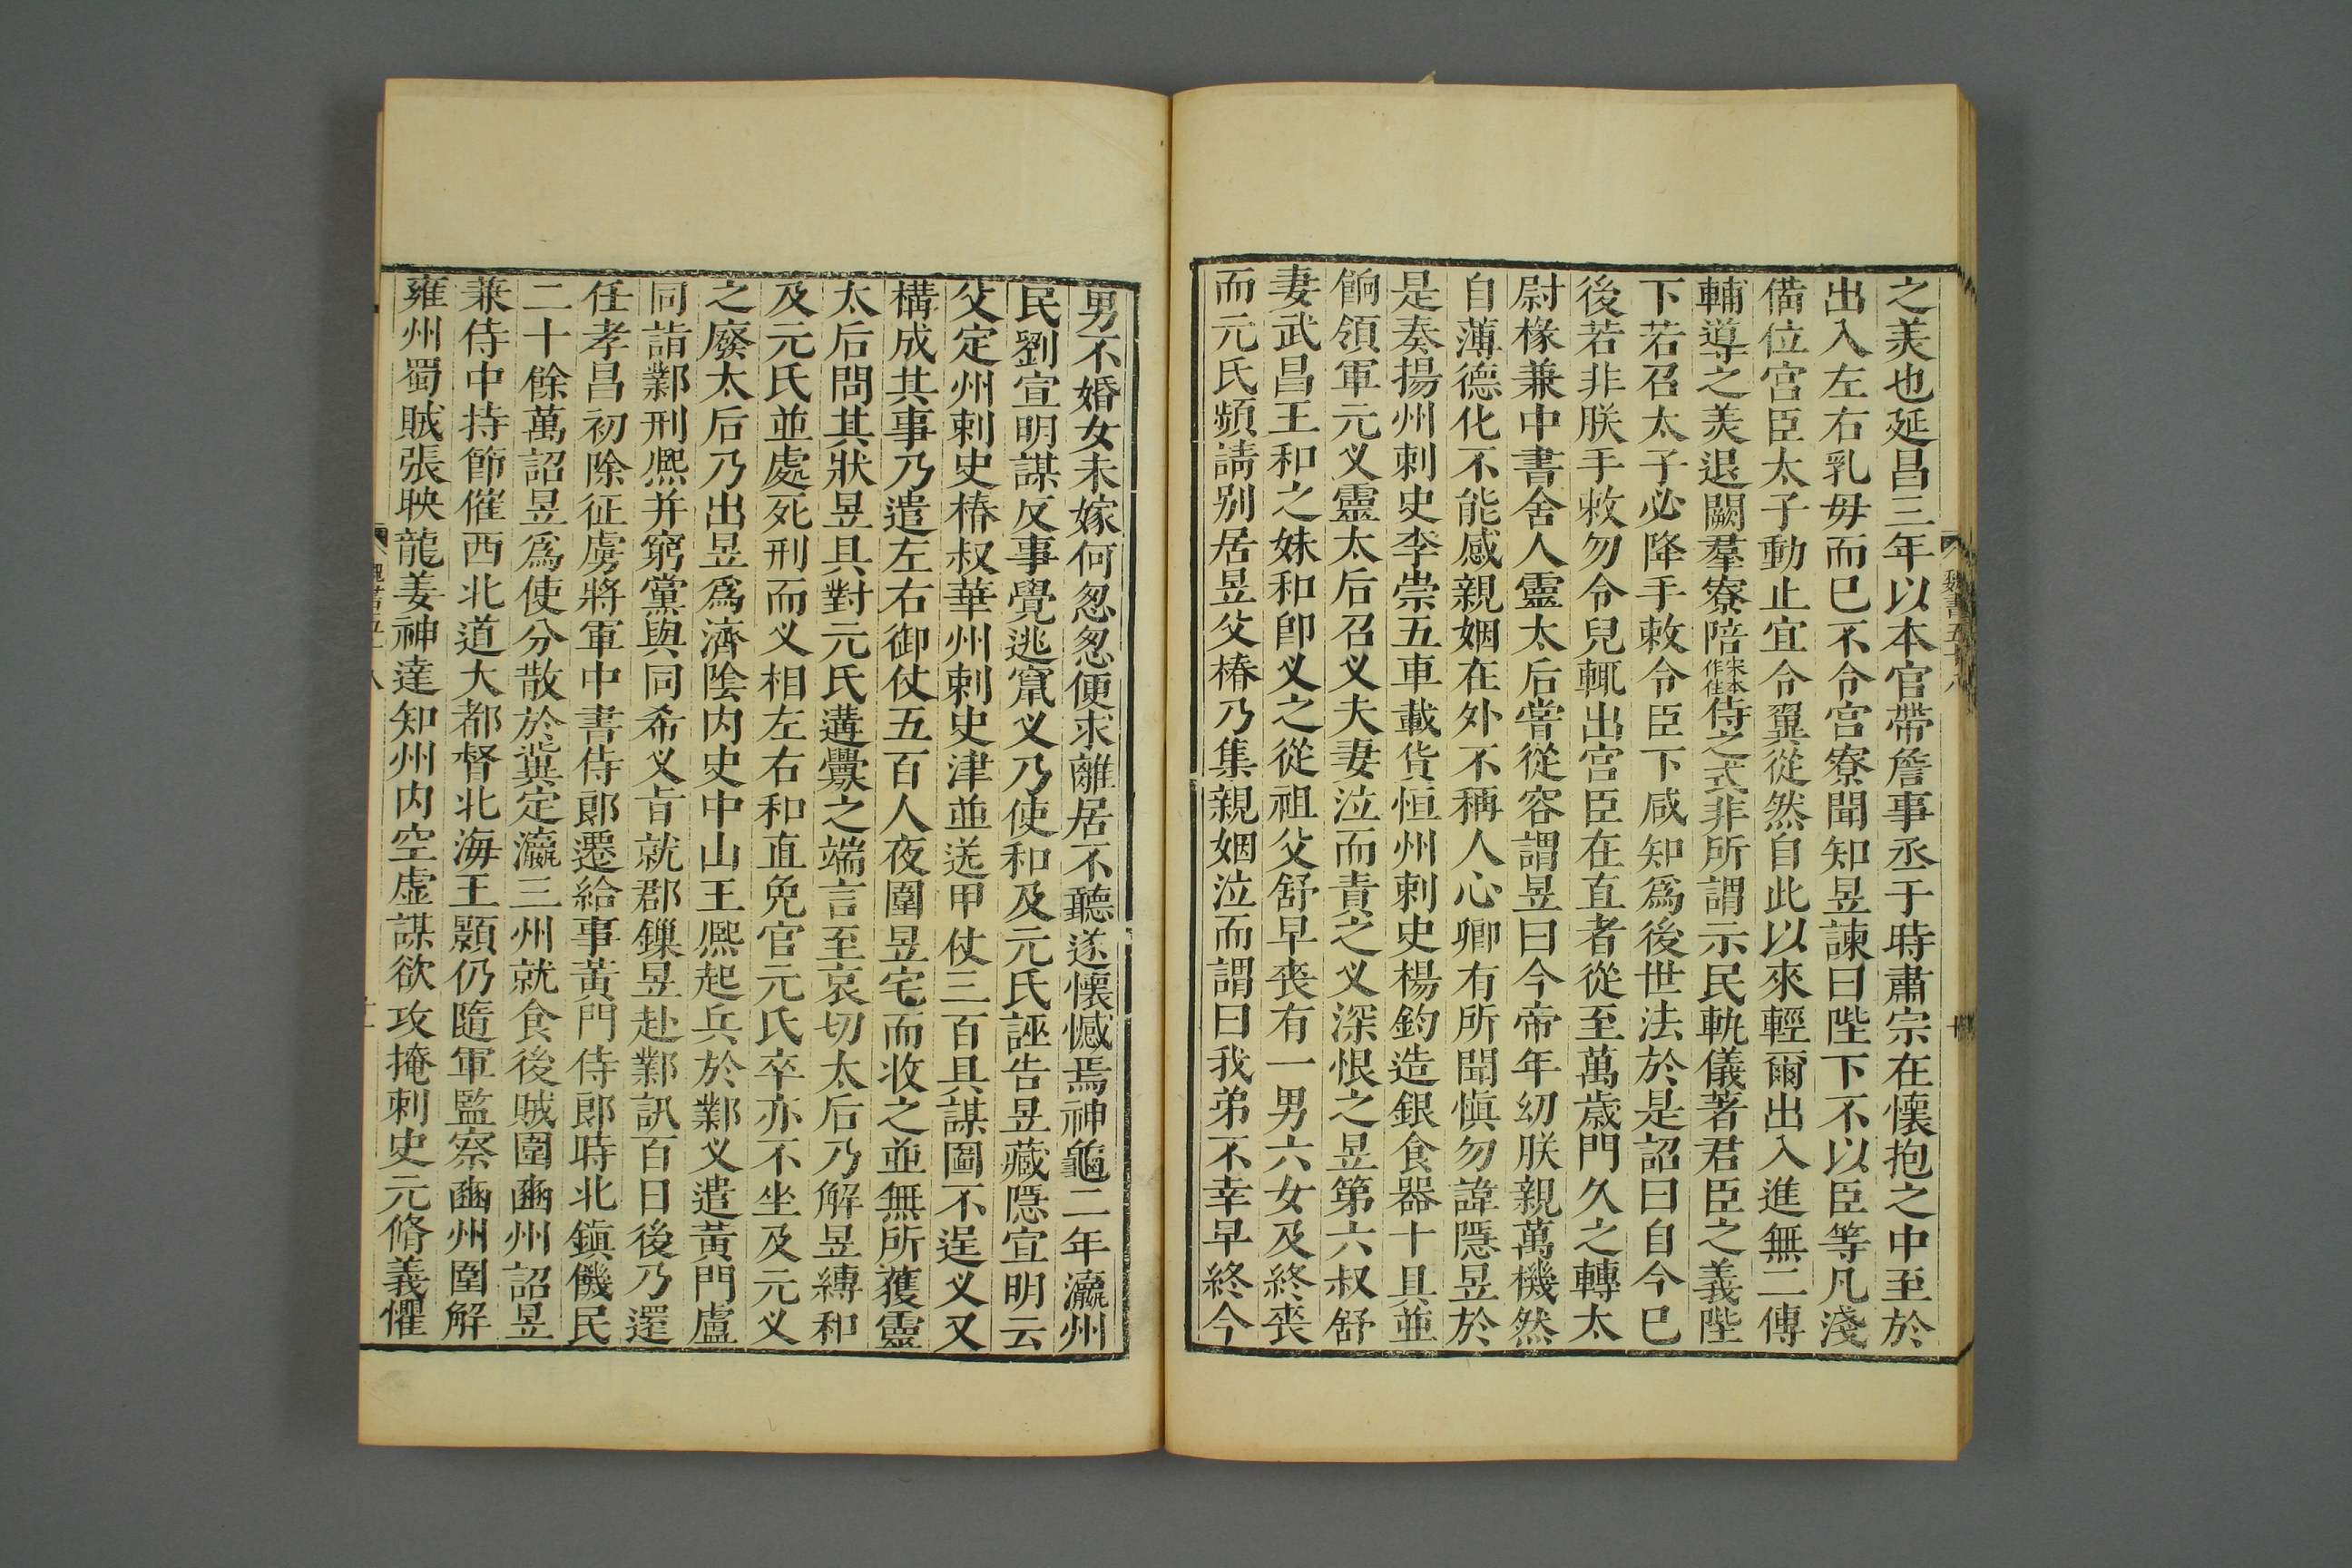 之美也延昌三年以本官帶詹事丞于時肅宗在懷抱之中至於
出入左右乳毋而巳不令宮寮聞知昱諫曰陛下不以臣等凡淺
備位宮臣太子動止宜令翼從然自此以來輕爾出入進無二傅
輔導之美退闕羣寮陪宋本作仕侍之式非所謂示民軌儀著君臣之義陛
下若召太子必降手敕令臣下咸知爲後世法於是詔曰自今巳
後若非朕手敕勿令兒輒出宮臣在直者從至萬歲門久之轉太
尉椽兼中書舍人靈太后嘗從容謂昱曰今帝年幼朕親萬機然
自薄德化不能感親姻在外不稱人心卿有所聞慎勿諱隱昱於
是奏揚州刺史李崇五車載貨恒州刺史楊鈞造銀食器十具並
餉領軍元义靈太后召义夫妻泣而責之义深恨之昱第六叔舒
妻武昌王和之妹和卽义之從祖父舒早喪有一男六女及終喪
而元氏頻請别居昱父椿乃集親姻泣而謂曰我弟不幸早終今
男不婚女未嫁何怱怱便求離居不聽遂懷憾焉神龜二年瀛州
民劉宣明謀反事覺逃竄义乃使和及元氏誣告昱藏隱宣明云
父定州刺史椿叔華州刺史津並送甲仗三百具謀圖不逞义又
構成其事乃遣左右御仗五百人夜圍昱宅而收之並無所獲靈
太后問其狀昱具對元氏遘釁之端言至哀切太后乃解昱縛和
及元氏並處死刑而义相左右和直免官元氏卒亦不坐及元义
之廢太后乃出昱爲濟陰内史中山王熙起兵於鄴义遣黃門盧
同詣鄴刑熙并窮黨與同希义旨就郡鏁昱赴鄴訊百日後乃還
任孝昌初除征虜將軍中書侍郎遷給事黃門侍郎時北鎮饑民
二十餘萬詔昱爲使分散於冀定瀛三州就食後賊圍豳州詔昱
兼侍中持節催西北道大都督北海王顥仍隨軍監察豳州圍解
雍州蜀賊張映龍姜神達知州内空虛謀欲攻掩刺史元脩義懼
魏書五十八
十